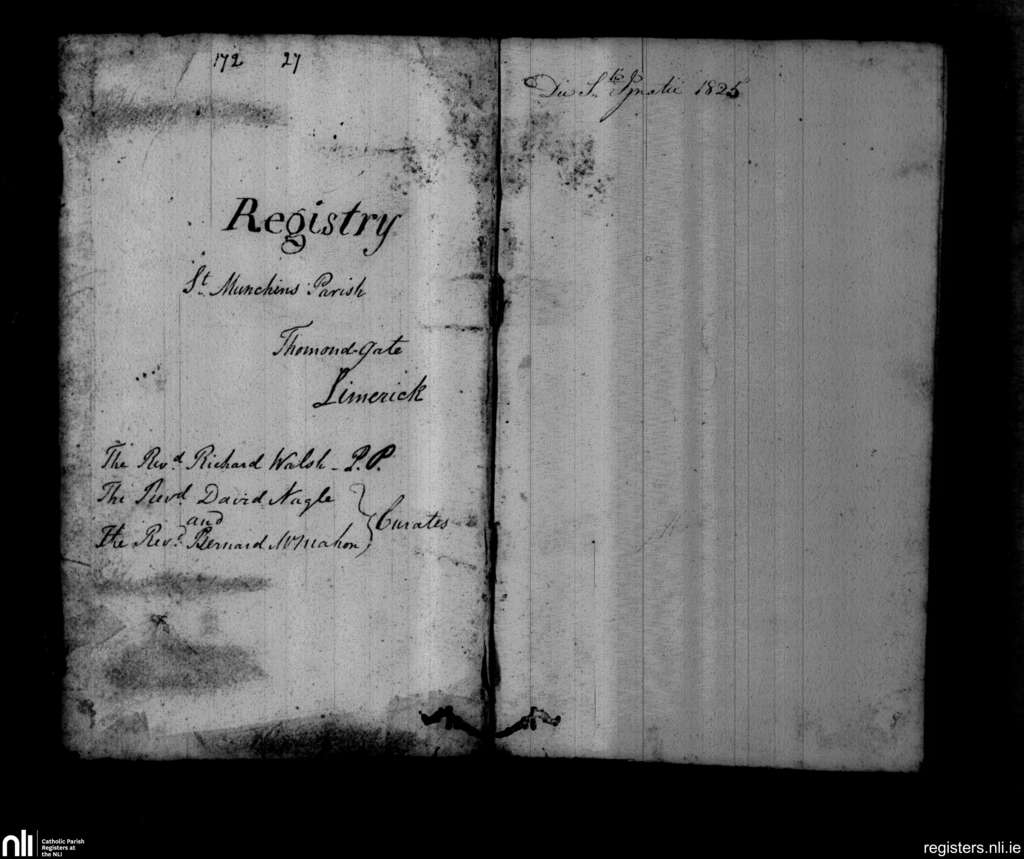 172 27
Registry
St. Munchins Parish
Thomond-Gate
Limerick
The Revd. Richard Walsh - P.P.
The Revd. David Nagle
and
Curates
The Revd. Bernard McMahon
Die Sti Ignatii 1825
nli
Catholic Parish
Registers at
the NLI
registers.nli.ie